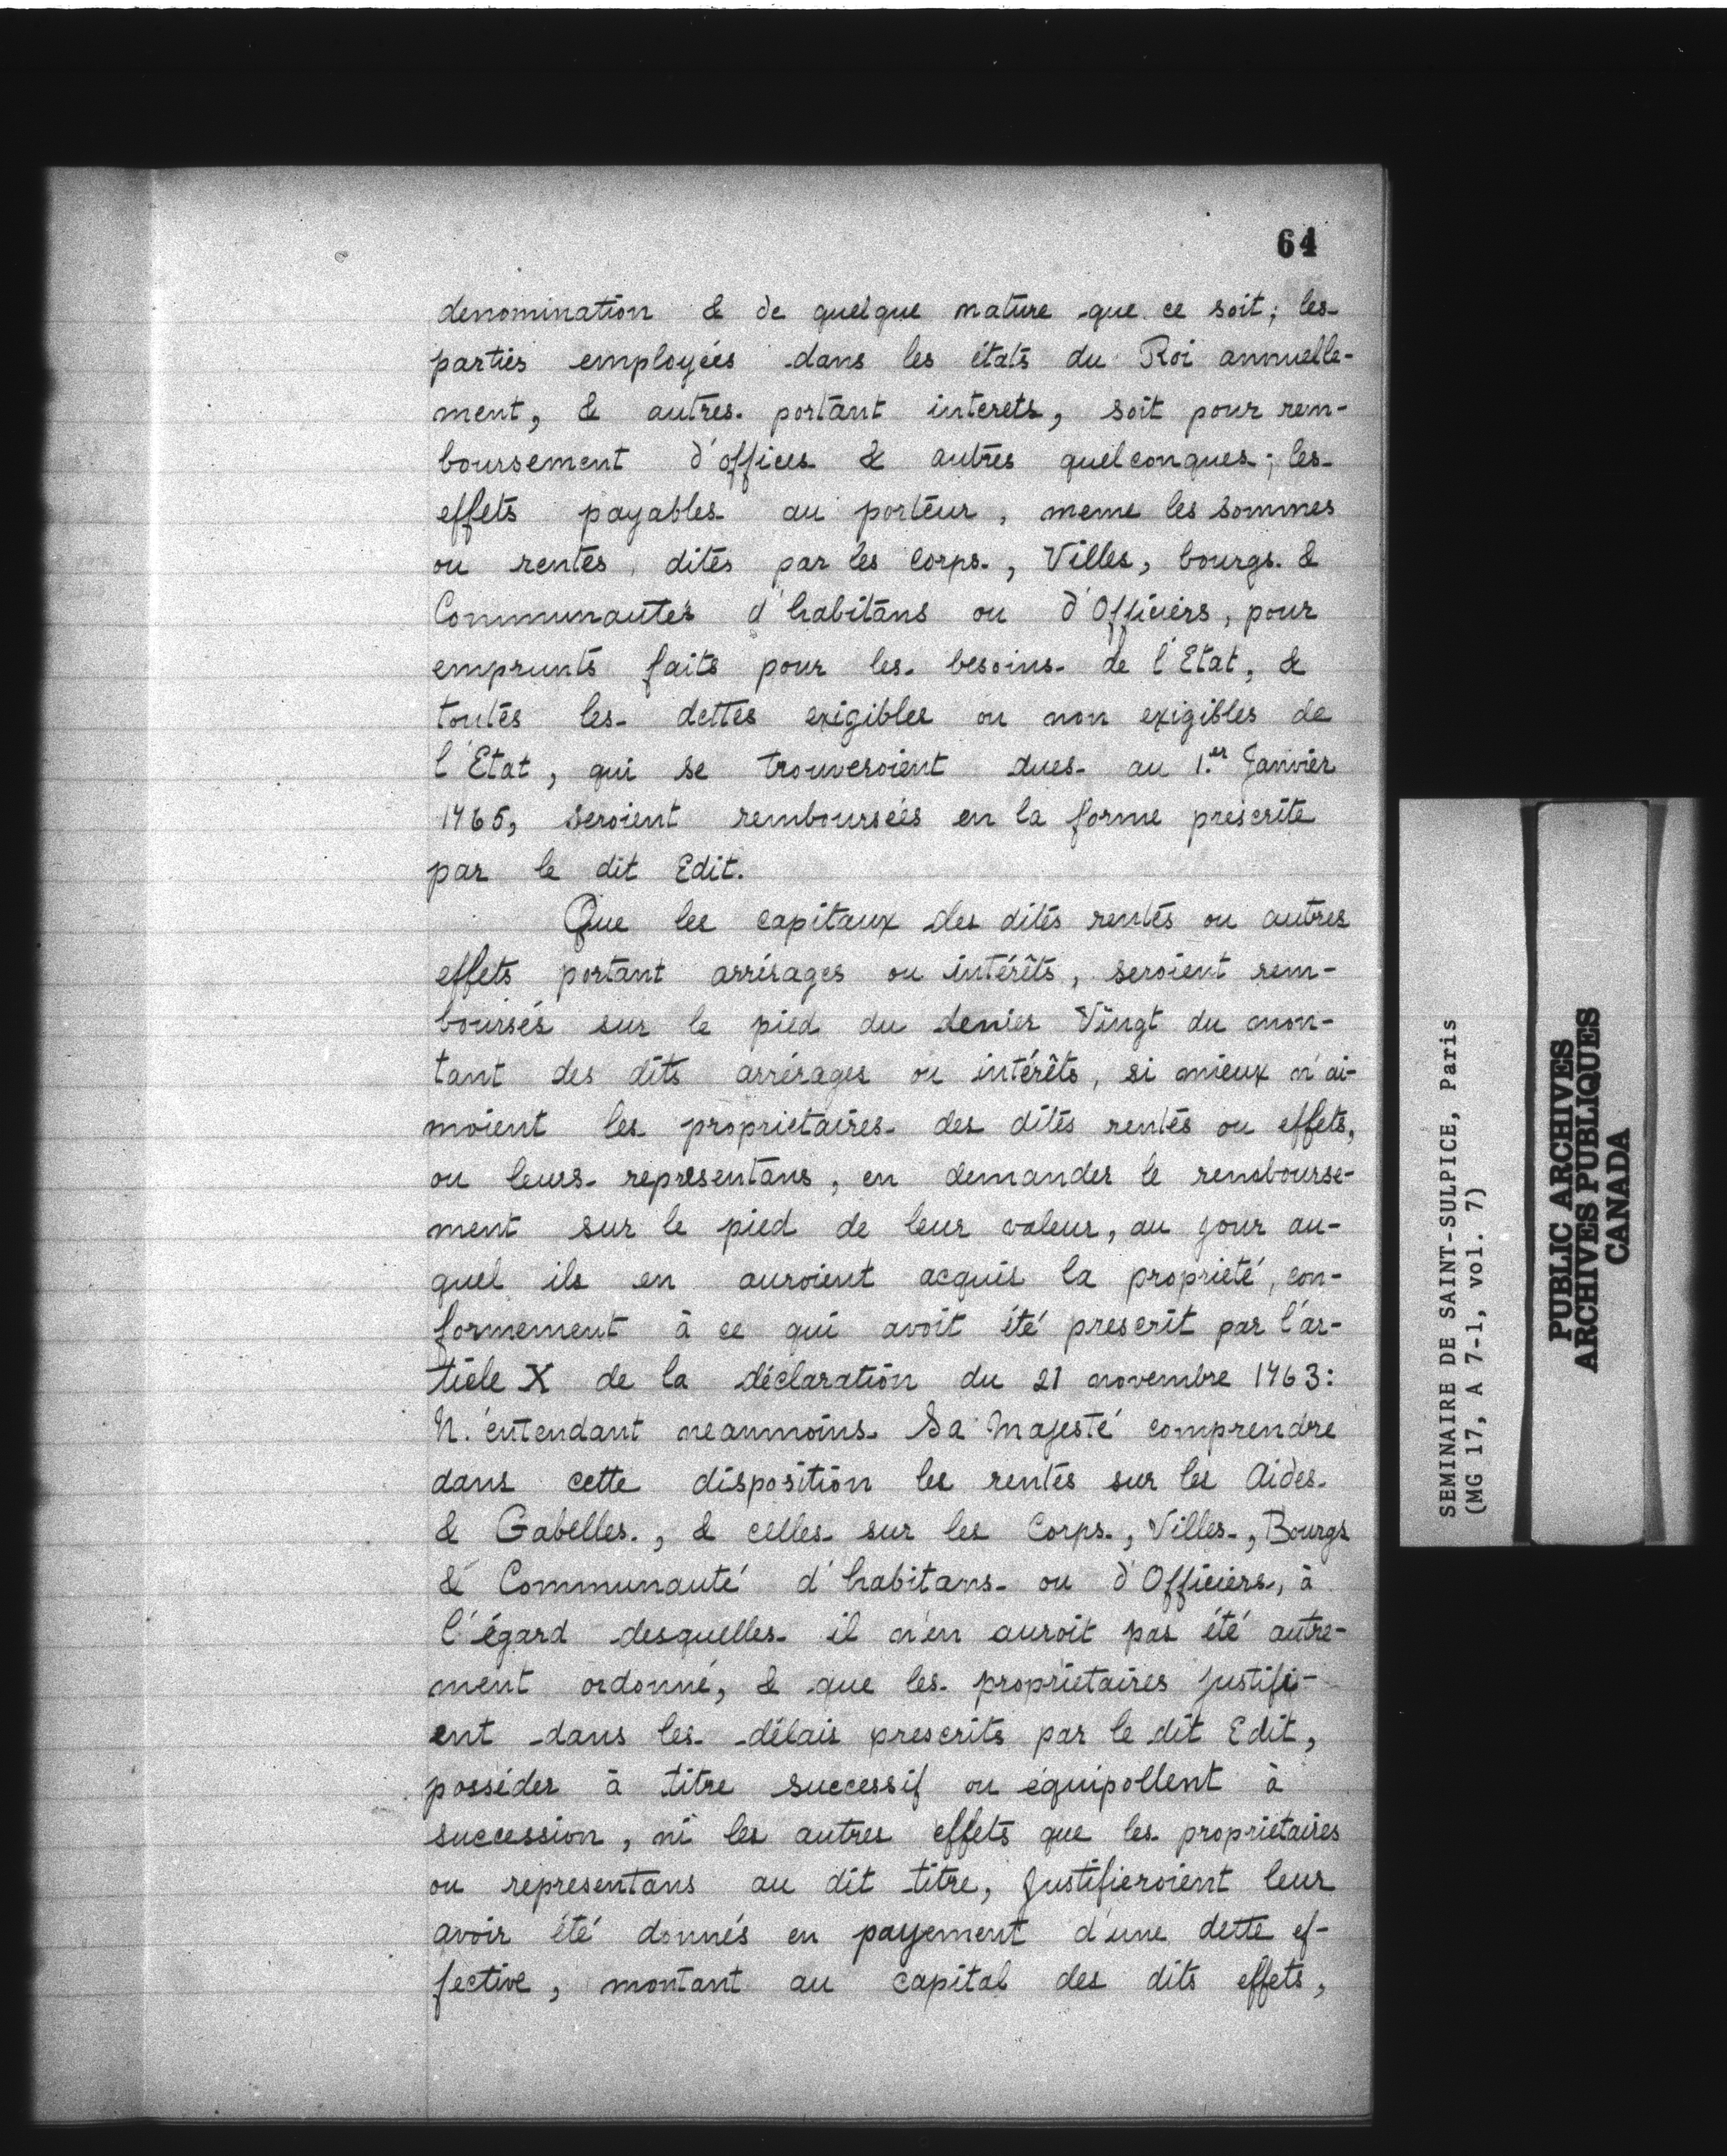 64
denomination & de quelque nature que ce soit; les
parties employées dans les états du Roi annuelle-
ment, & autres portant interets, soit pour rem-
boursement d'offices & autres quelconques; les
effets payables au porteur, meme les sommes
ou rentes dites par les corps, Villes, bourgs &
Communautés d'habitans ou d'Officiers, pour
emprunts faits pour les besoins de l'Etat, &
toutes les dettes exigibles ou non exigibles de
l'Etat, qui se trouveroient dues au 1.er Janvier
1765, seroient remboursées en la forme prescrite
par le dit Edit.
Que les capitaux des dites rentes ou autres
effets portant arrérages ou intérêts, seroient rem-
boursés sur le pied du denier Vingt du mon-
tant des dits arrérages ou intérêts, si mieux n'ai-
moient les proprietaires des dites rentes ou effets,
ou leurs representans, en demander le rembourse-
ment sur le pied de leur valeur, au jour au-
quel ils en auroient acquis la proprieté, con-
formement à ce qui avoit été prescrit par l'ar-
ticle X de la déclaration du 21 novembre 1763:
N'entendant neanmoins Sa Majesté comprendre
dans cette disposition les rentes sur les Aides
& Gabelles, & celles sur les Corps, Villes, Bourgs
& Communauté d'habitans ou d'Officiers, à
l'égard desquelles il n'en auroit pas été autre-
ment ordonné, & que les proprietaires justifi-
ent dans les délais prescrits par le dit Edit,
posséder à titre successif ou équipollent à
succession, ni les autres effets que les proprietaires
ou representans au dit titre, justifieroient leur
avoir été donnés en payement d'une dette ef-
fective, montant au capital des dits effets,
SEMINAIRE DE SAINT-SULPICE, Paris
(MG 17, A 7-1, vol. 7)
PUBLIC ARCHIVES
ARCHIVES PUBLIQUES
CANADA